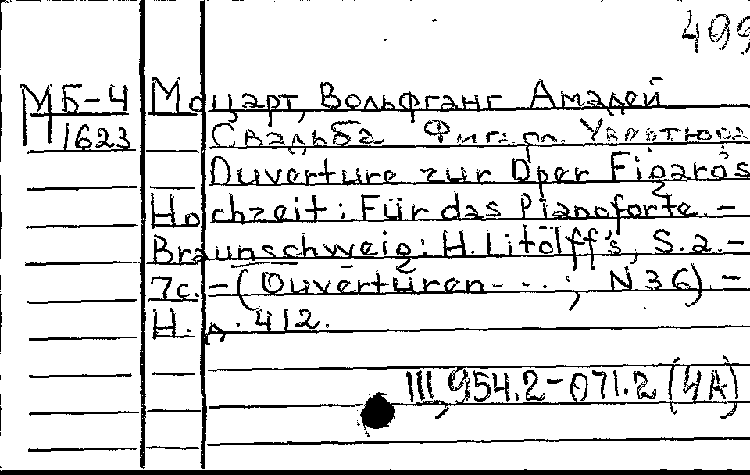 499
МБ-4 Моцарт, Вольфганг Амадей
М 1623 Свадьба Фигаро. Увертюра
Ouverture zur Oper Figaros
Hochzeit: Für das Pianoforte. -
Braunschweig: H. Litolff's, S.a. -
7с. - (Ouverturen...; N36). -
Н.д. 412.
Щ954.2-071.2 (4А)